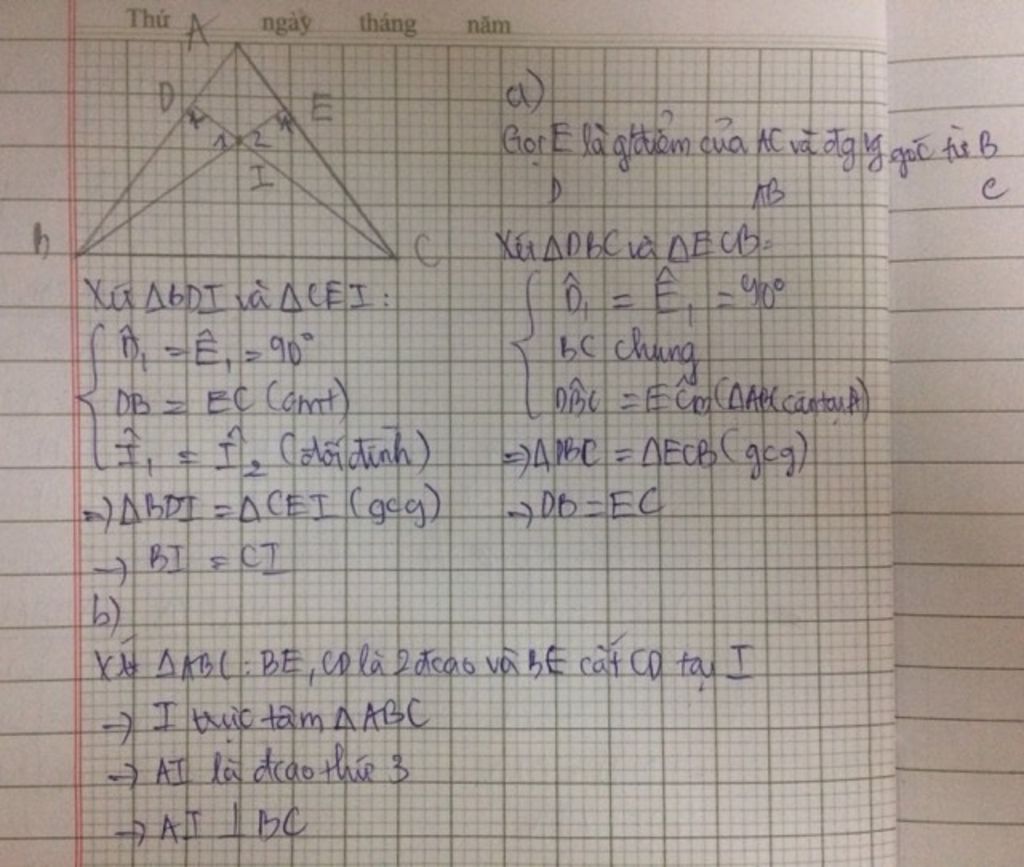 Thứ ngày tháng năm
A
D E
1 2
I
B C
a)
Gọi E là g/điểm của AC và đg vg góc từ B
D AB C
Xét ΔDBC và ΔECB:
D̂₁ = Ê₁ = 90°
BC chung
DB̂C = EĈB (ΔABC cân tại A)
=> ΔDBC = ΔECB (gcg)
-> DB = EC
Xét ΔBDI và ΔCEI:
D̂₁ = Ê₁ = 90°
DB = EC (cmt)
Î₁ = Î₂ (đối đỉnh)
=> ΔBDI = ΔCEI (gcg)
-> BI = CI
b)
Xét ΔABC: BE, CD là 2 đcao và BE cắt CD tại I
-> I trực tâm ΔABC
-> AI là đcao thứ 3
-> AI ⊥ BC